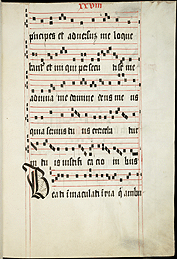 xxviii
pncipes et adversus me loque
bant et iniqui persecu ti sunt me
adiuva me domine deus me us
quia servus tu us exerceba tur
in tu is iustificatio nibus
Beati immaculati i via q ambu